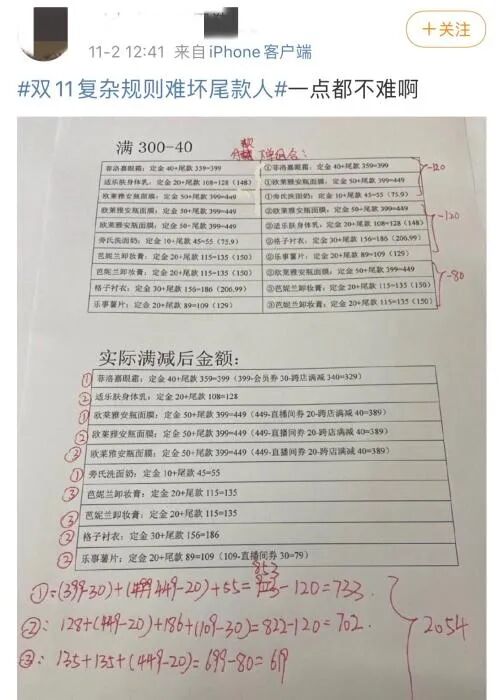 11-2 12:41 来自iPhone客户端
+关注
#双11复杂规则难坏尾款人#一点都不难啊
满 300-40
下单组合:
菲洛嘉眼霜: 定金 40+尾款 359=399
①菲洛嘉眼霜: 定金 40+尾款 359=399
适乐肤身体乳: 定金 20+尾款 108=128 (148)
①欧莱雅安瓶面膜: 定金 50+尾款 399=449
欧莱雅安瓶面膜: 定金 50+尾款 399=449
①旁氏洗面奶: 定金 10+尾款 45=55 (75.9)
-120
欧莱雅安瓶面膜: 定金 50+尾款 399=449
②欧莱雅安瓶面膜: 定金 50+尾款 399=449
欧莱雅安瓶面膜: 定金 50+尾款 399=449
②适乐肤身体乳: 定金 20+尾款 108=128 (148)
旁氏洗面奶: 定金 10+尾款 45=55 (75.9)
②格子衬衣: 定金 30+尾款 156=186 (206.99)
芭妮兰卸妆膏: 定金 20+尾款 115=135 (150)
②乐事薯片: 定金 20+尾款 89=109 (129)
-120
芭妮兰卸妆膏: 定金 20+尾款 115=135 (150)
③欧莱雅安瓶面膜: 定金 50+尾款 399=449
格子衬衣: 定金 30+尾款 156=186 (206.99)
③芭妮兰卸妆膏: 定金 20+尾款 115=135 (150)
乐事薯片: 定金 20+尾款 89=109 (129)
③芭妮兰卸妆膏: 定金 20+尾款 115=135 (150)
-80
实际满减后金额:
① 菲洛嘉眼霜: 定金 40+尾款 359=399 (399-会员券 30-跨店满减 340=329)
② 适乐肤身体乳: 定金 20+尾款 108=128
① 欧莱雅安瓶面膜: 定金 50+尾款 399=449 (449-直播间券 20-跨店满减 40=389)
② 欧莱雅安瓶面膜: 定金 50+尾款 399=449 (449-直播间券 20-跨店满减 40=389)
③ 欧莱雅安瓶面膜: 定金 50+尾款 399=449 (449-直播间券 20-跨店满减 40=389)
① 旁氏洗面奶: 定金 10+尾款 45=55
③ 芭妮兰卸妆膏: 定金 20+尾款 115=135
③ 芭妮兰卸妆膏: 定金 20+尾款 115=135
② 格子衬衣: 定金 30+尾款 156=186
② 乐事薯片: 定金 20+尾款 89=109 (109-直播间券 30=79)
853
①=(399-30)+(449-20)+55= -120=733
②: 128+(449-20)+186+(109-30)=822-120=702
③: 135+135+(449-20)=699-80=619
2054